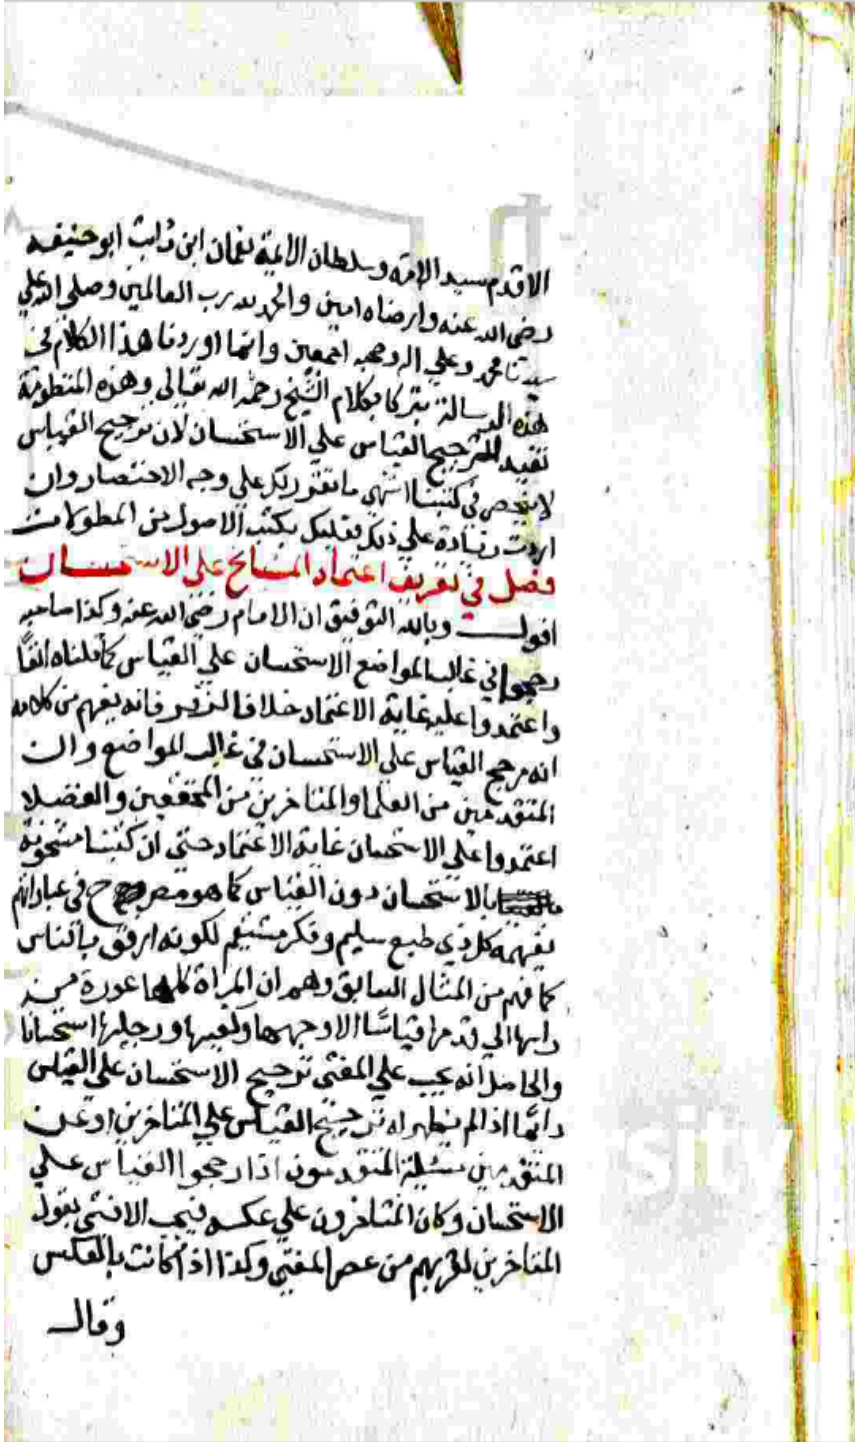 الاقدم سيد الامة وسلطان الايمة نعمان ابن ثابت ابو حنيفه
رضي الله عنه وارضاه امين والحمد لله رب العالمين وصلي الله علي
سيدنا محمد وعلي اله وصحبه اجمعين وانما اوردنا هذا الكلام في
هذه الرسالة تبركا بكلام الشيخ رحمه الله تعالي وهذه المنظومة
تفيد الترجيح القياس علي الاستحسان لان ترجيح القياس
لا ينحصر في كتبنا انتهي ما تقرر لك علي وجه الاختصار وان
اردت زيادة علي ذلك فعليك بكتب الاصول من المطولات
فصل في تعريف اعتماد المشايخ علي الاستحسان
اقول وبالله التوفيق ان الامام رضي الله عنه وكذا صاحبه
رجحوا في غالب المواضع الاستحسان علي القياس كما قلناه انفا
واعتمدوا عليه غاية الاعتماد خلافا لزفر فانه يفهم من كلامه
انه مرجح القياس علي الاستحسان في غالب المواضع وان
المتقدمين من العلما والمتاخرين من المحققين والفضلا
اعتمدوا علي الاستحسان غاية الاعتماد حتي ان كتبنا مشحونة
بالاستحسان دون القياس كما هو مصرح في عباراتهم
يفهمه كل ذي طبع سليم وفكر مستقيم لكونه ارفق بالناس
كما فهم من المثال السابق وهو ان المراة كلها عورة من
راسها الي قدمها قياسا الا وجهها وكفيها ورجليها استحسانا
والحاصل انه يجب علي المفتي ترجيح الاستحسان علي القياس
دائما اذا لم يظهر له ترجيح القياس علي المتاخرين او عن
المتقدمين المتقدمون اذا رجحوا القياس علي
الاستحسان وكان المتاخرون علي عكسه فيجب الافتي بقول
المتاخرين لقربهم من عصر المفتي وكذا اذا كانت بالعكس
وقال